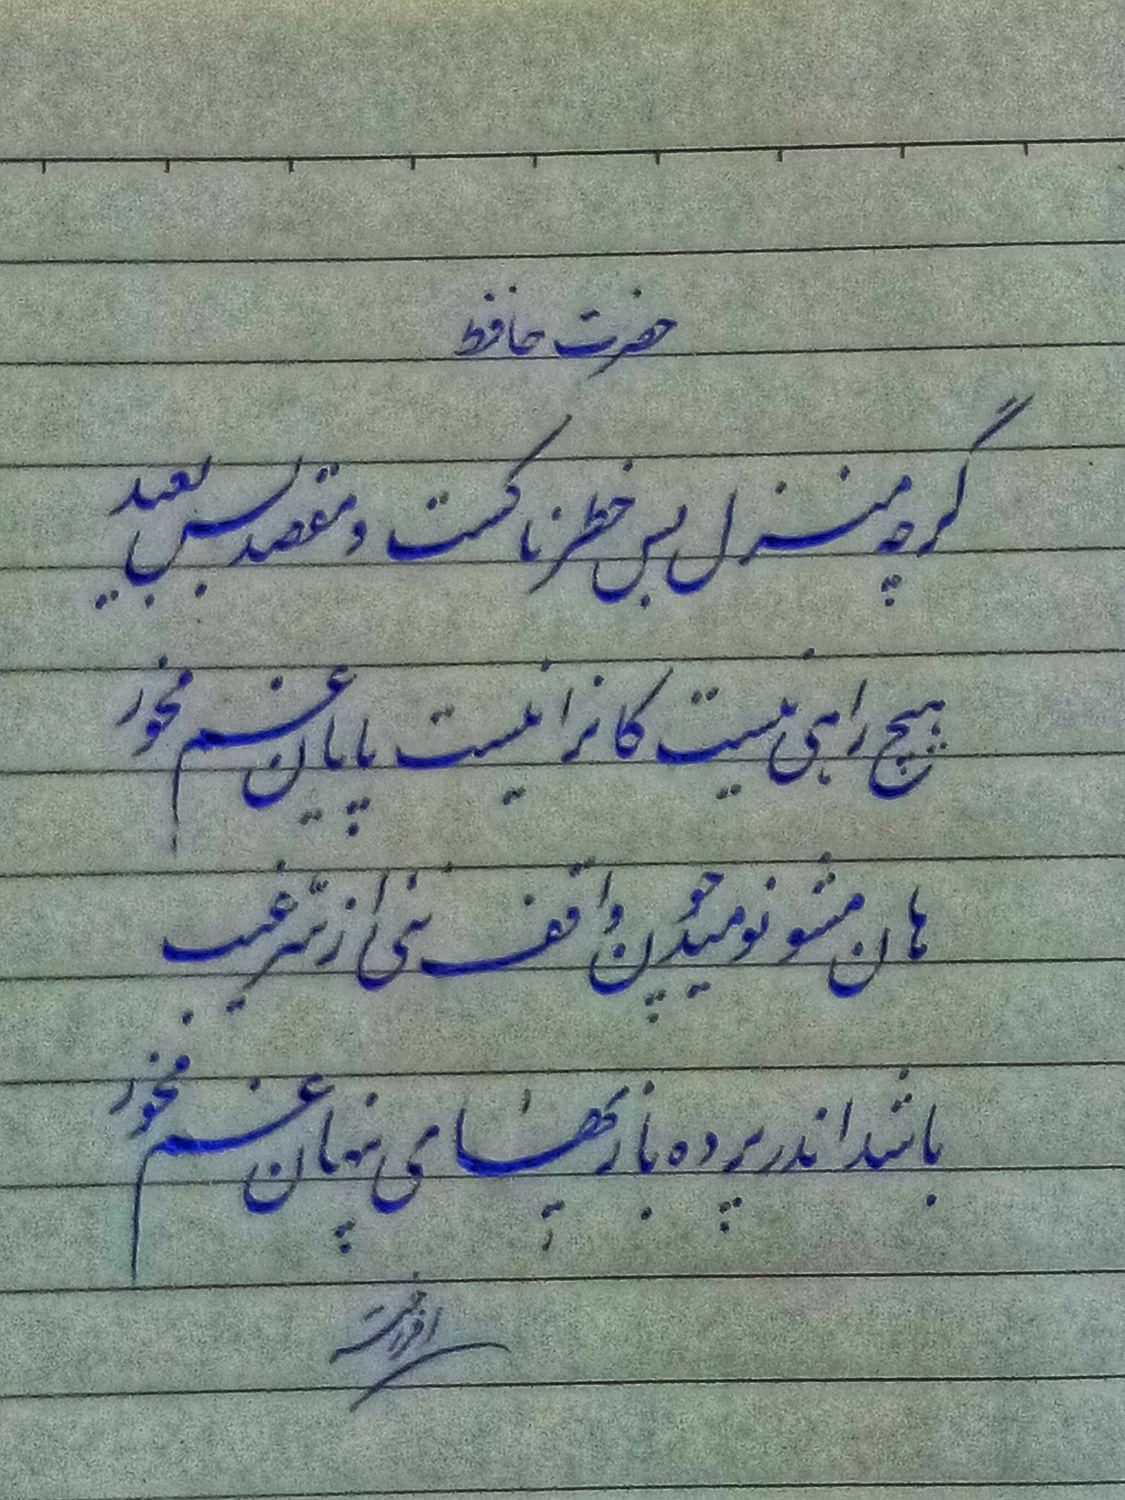 حضرت حافظ
گرچه منزل بس خطرناکست و مقصد بس بعید
هیچ راهی نیست کانرا نیست پایان غم مخور
هان مشو نومید چون واقف نئی از سّر غیب
باشد اندر پرده بازیهای پنهان غم مخور